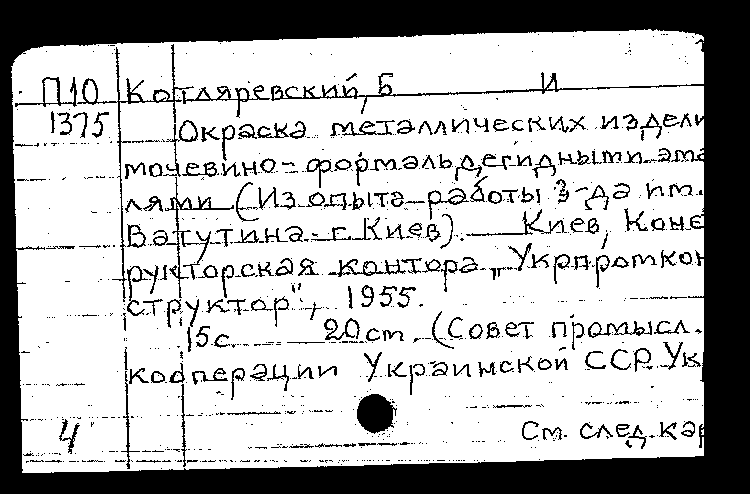 П10 Котляревский, Б И
1375 Окраска металлических издели
мочевино-формальдегидными эма
лями (Из опыта работы з-да им.
Ватутина г. Киев). Киев, Конс
рукторская контора „Укрпромкон
структор", 1955.
15с. 20 см. (Совет промысл.
кооперации Украинской ССР. Ук
4 См. след. кар